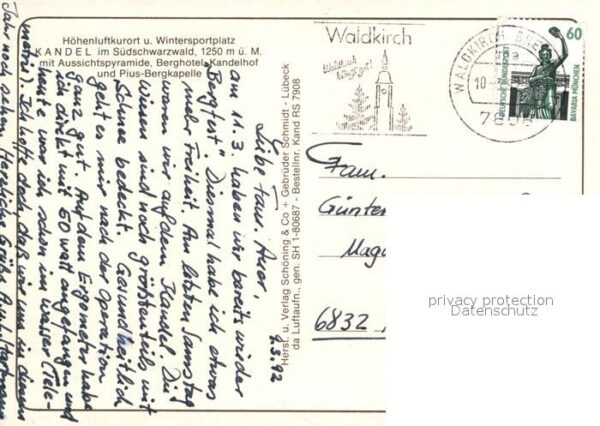 Höhenluftkurort u. Wintersportplatz
KANDEL im Südschwarzwald, 1250 m ü. M.
mit Aussichtspyramide, Berghotel Kandelhof
und Pius-Bergkapelle
Waldkirch
WALDKIRCH
10
60
DEUTSCHE BUNDESPOST
BAVARIA MÜNCHEN
Herst. u. Verlag Schöning & Co + Gebrüder Schmidt - Lübeck
da Luftaufn., gen. SH 1-80687 - Bestellnr. Kand RS 7908
9.3.92
Liebe Fam. Auer,
am 11.3. haben wir bereits wieder
"Bergfest". Diesmal habe ich etwas
mehr Freiheit. Am letzten Samstag
waren wir auf dem Kandel. Die
Wiesen sind noch größtenteils mit
Schnee bedeckt. Gesundheitlich
geht es mir nach der Operation
ganz gut. Auf dem Ergometer habe
ich direkt mit 50 Watt angefangen und
heute war ich schon im Wasser (Tele-
Ich hoffe doch, daß wir uns in diesem
Jahr noch sehen. Herzliche Grüße
Fam.
Günter
6832
privacy protection
Datenschutz